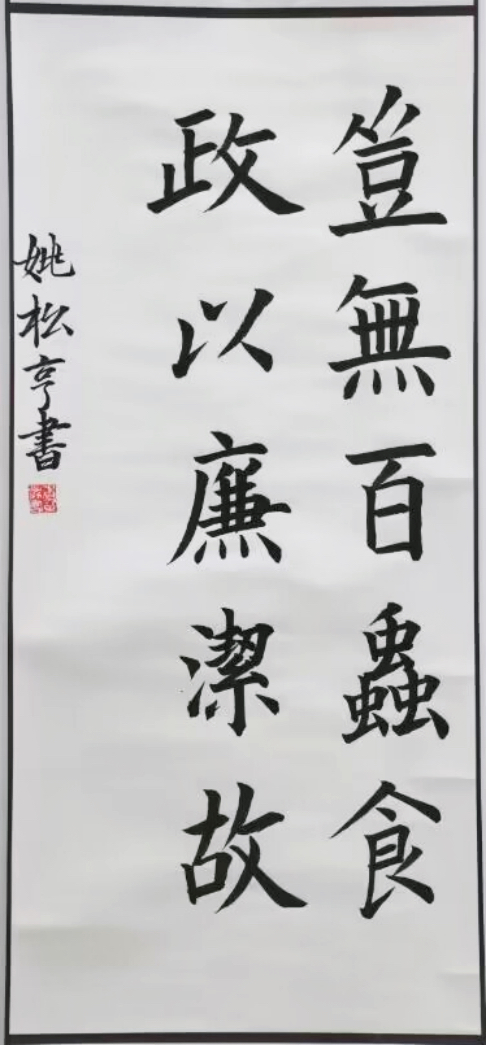 豈無百蟲食
政以廉潔故
姚松亭書